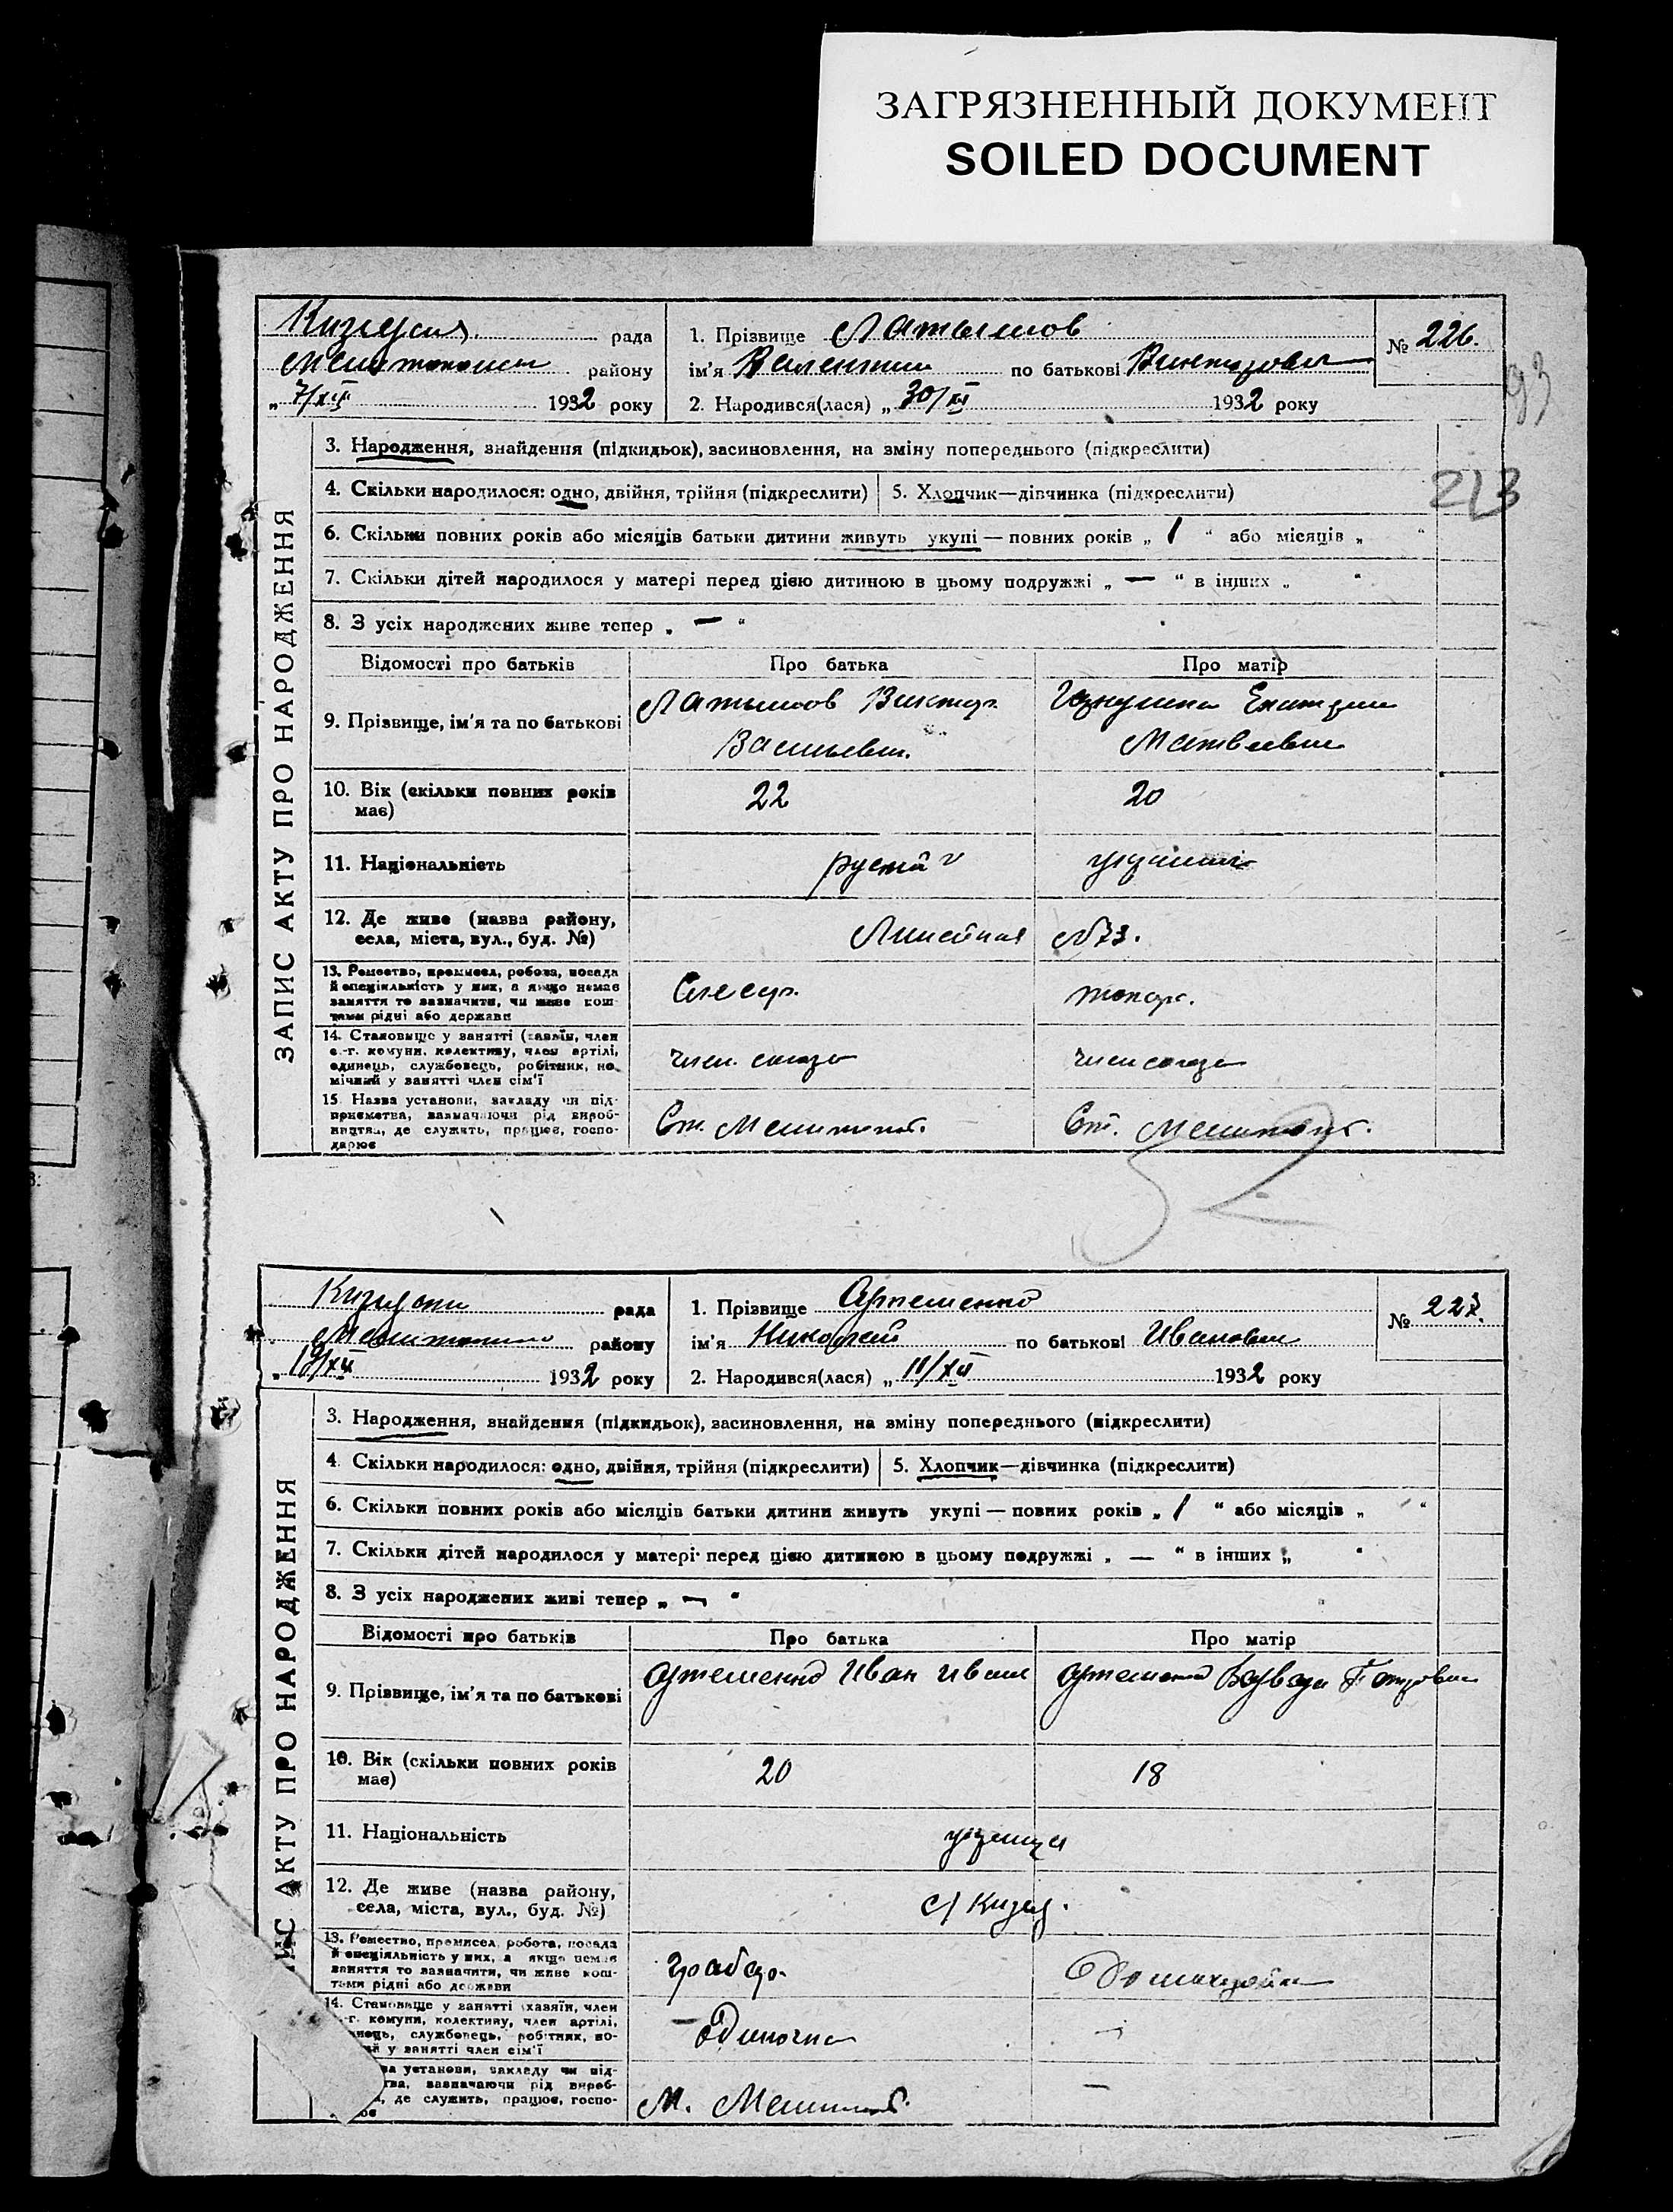 ЗАГРЯЗНЕННЫЙ ДОКУМЕНТ
SOILED DOCUMENT
рада
1. Прізвище Латышов
№ 226.
району
ім'я Валентин по батькові Викторович
„ 7/XII 1932 року
2. Народився(лася) „ 30/XI 1932 року
93
ЗАПИС АКТУ ПРО НАРОДЖЕННЯ
3. Народження, знайдення (підкидьок), засиновлення, на зміну попереднього (підкреслити)
4. Скільки народилося: одно, двійня, трійня (підкреслити)
5. Хлопчик—дівчинка (підкреслити)
213
6. Скільки повних років або місяців батьки дитини живуть укупі — повних років „ 1 “ або місяців „ “
7. Скільки дітей народилося у матері перед цією дитиною в цьому подружжі „ — “ в інших „ “
8. З усіх народжених живе тепер „ — “
Відомості про батьків
Про батька
Про матір
9. Прізвище, ім'я та по батькові
Латышов Виктор
Екатерина
Васильевич.
Матвеевна
10. Вік (скільки повних років
має)
22
20
11. Національність
руский
украинка
12. Де живе (назва району,
села, міста, вул., буд. №)
Линейная №73.
13. Ремество, промисел, робота, посада
й спеціяльність у них, а якщо немає
заняття то зазначити, чи живе кош-
тами рідні або держави
Слесарь
токарь.
14. Становище у занятті (хазяїн, член
с.-г. комуни, колективу, член артілі,
одинець, службовець, робітник, по-
мічний у занятті член сім'ї
член. союза
член союза
15. Назва установи, закладу чи під-
приємства, зазначаючи рід вироб-
ництва, де служить, працює, госпо-
дарює
Ст. Мелитоп.
Ст. Мелитоп.
рада
1. Прізвище Артеменко
№ 227.
району
ім'я Николай по батькові Иванович
„ 19/XII 1932 року
2. Народився(лася) „ 11/XII 1932 року
АКТУ ПРО НАРОДЖЕННЯ
3. Народження, знайдення (підкидьок), засиновлення, на зміну попереднього (підкреслити)
4. Скільки народилося: одно, двійня, трійня (підкреслити)
5. Хлопчик—дівчинка (підкреслити)
6. Скільки повних років або місяців батьки дитини живуть укупі — повних років „ 1 “ або місяців „ “
7. Скільки дітей народилося у матері перед цією дитиною в цьому подружжі „ — “ в інших „ “
8. З усіх народжених живі тепер „ — “
Відомості про батьків
Про батька
Про матір
9. Прізвище, ім'я та по батькові
Артеменко Иван Иван
Артеменко Варвара Петровна
10. Вік (скільки повних років
має)
20
18
11. Національність
украинцы
12. Де живе (назва району,
села, міста, вул., буд. №)
с/ Кизяр.
13. Ремество, промисел, робота, посада
й спеціяльність у них, а якщо немає
заняття то зазначити, чи живе кош-
тами рідні або держави
грабарь
Домохозяйка
14. Становище у занятті (хазяїн, член
-г. комуни, колективу, член артілі,
службовець, робітник, по-
у занятті член сім'ї
одиночка
—
установи, закладу чи під-
зазначаючи рід вироб-
де служить, працює, госпо-
М. Мелитоп.
—